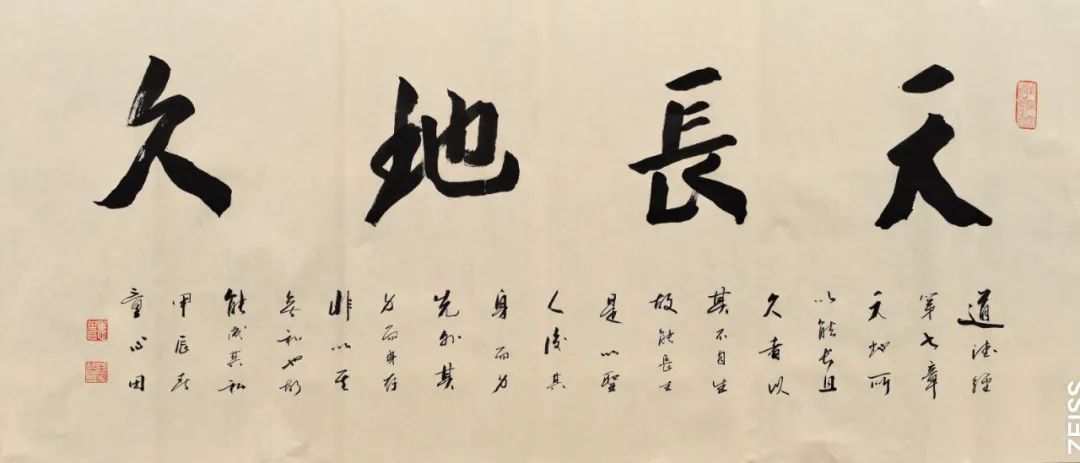 天長地久
道德經
第七章
天地所
以能長且
久者以
其不自生
故能長生
是以聖
人後其
身而身
先外其
身而身存
非以其
無私也邪
能成其私
甲辰
童心田
ZEISS